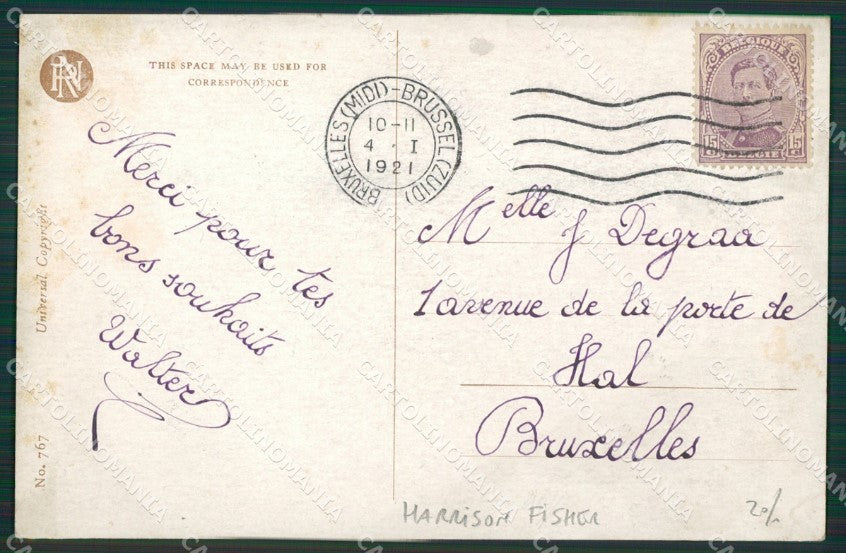 RN
THIS SPACE MAY BE USED FOR
CORRESPONDENCE
BRUXELLES (MIDI)-BRUSSEL (ZUID)
10-11
4 . I
1921
BELGIQUE
15 15
Merci pour tes
bons souhaits
Walter
Melle J Degraa
1 avenue de la porte de
Hal
Bruxelles
Universal Copyright
No. 767
HARRISON FISHER
CARTOLINOMANIA